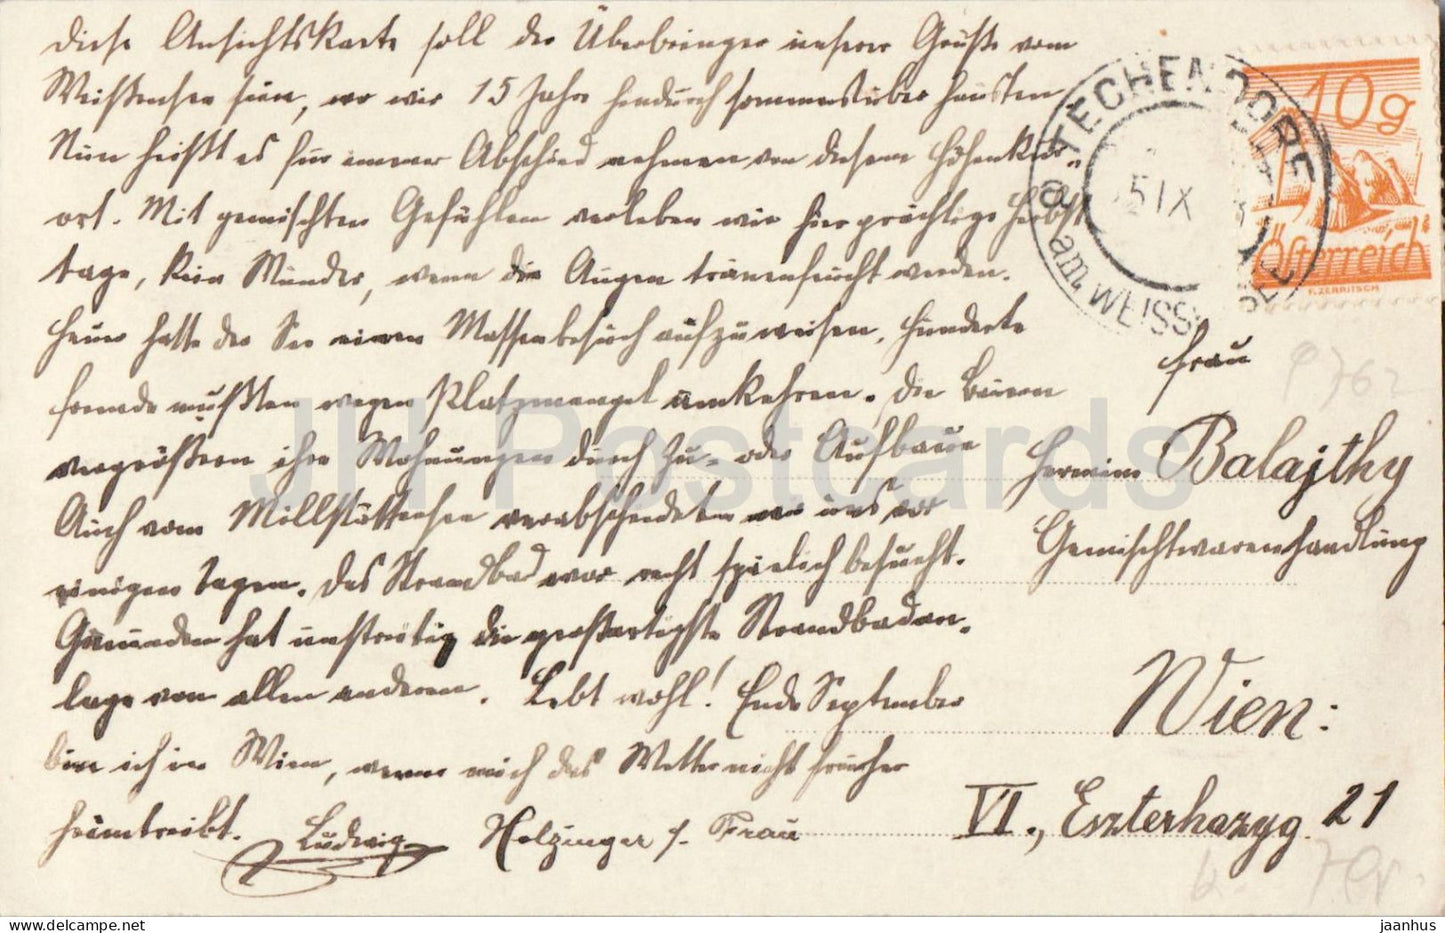 Diese Ansichtskarte soll der Überbringer unserer Grüße vom
Weißensee sein, wo wir 15 Jahre hindurch sommersüber hausten
Nun heißt es für immer Abschied nehmen von diesem Höhenkur-
ort. Mit gemischten Gefühlen verleben wir hier prächtige Herbst
tage, kein Wunder, wenn die Augen tränenfeucht werden.
Heuer hatte der See einen Massenbesuch aufzuweisen, hunderte
Fremde mußten wegen Platzmangel umkehren. Die Bauern
vergrößern ihre Wohnungen durch Zu- oder Aufbaue
Auch vom Millstättersee verabschiedeten wir uns vor
einigen Tagen. Das Strandbad war recht spielich besucht.
Gmunden hat unstreitig die großartigste Strandbadan-
lage von allen anderen. Lebt wohl! Ende September
bin ich in Wien, wenn mich das Wetter nicht früher
heimtreibt. Ludwig Holzinger s. Frau
STECHENDORF
am WEISS
5 IX
10g
Österreich
F. ZERRITSCH
Frau
Hermine Balajthy
Gemischtwarenhandlung
Wien:
VI., Eszterhazyg. 21
JH Postcards
jaanhus delcampe.net